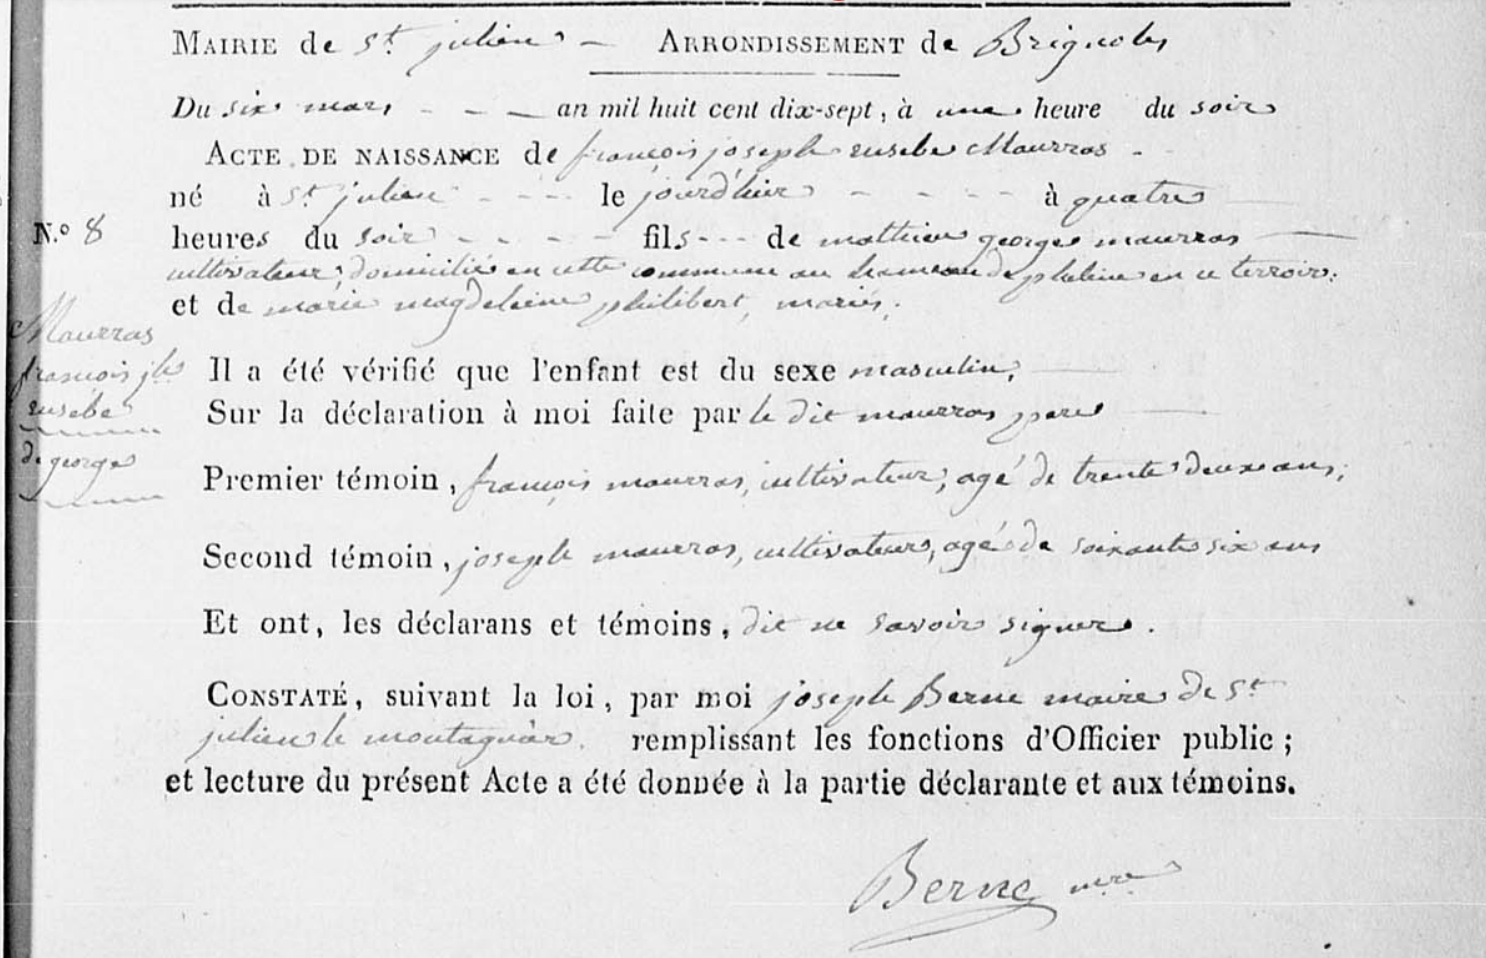 MAIRIE de St julien — ARRONDISSEMENT de Brignoles
Du six mars - - — an mil huit cent dix-sept, à une heure du soir
ACTE DE NAISSANCE de françois joseph eusebe Maurras -
né à St julien - - - le jourd'hier - - - - à quatre
N.º 8
heures du soir - - - - fils - - - de mathieu george maurras —
cultivateur, domicilié en cette commune au hameau de en ce terroir.
et de marie magdeleine philibert, mariés.
Maurras
francois jh
eusebe
de george
Il a été vérifié que l'enfant est du sexe masculin,
Sur la déclaration à moi faite par le dit maurras pere
Premier témoin, françois maurras, cultivateur, agé de trente deux ans,
Second témoin, joseph maurras, cultivateur, agé de soixante six ans
Et ont, les déclarans et témoins, dit ne savoir signer.
CONSTATÉ, suivant la loi, par moi joseph Berne maire de St
julien le montagnier. remplissant les fonctions d'Officier public ;
et lecture du présent Acte a été donnée à la partie déclarante et aux témoins.
Berne mre